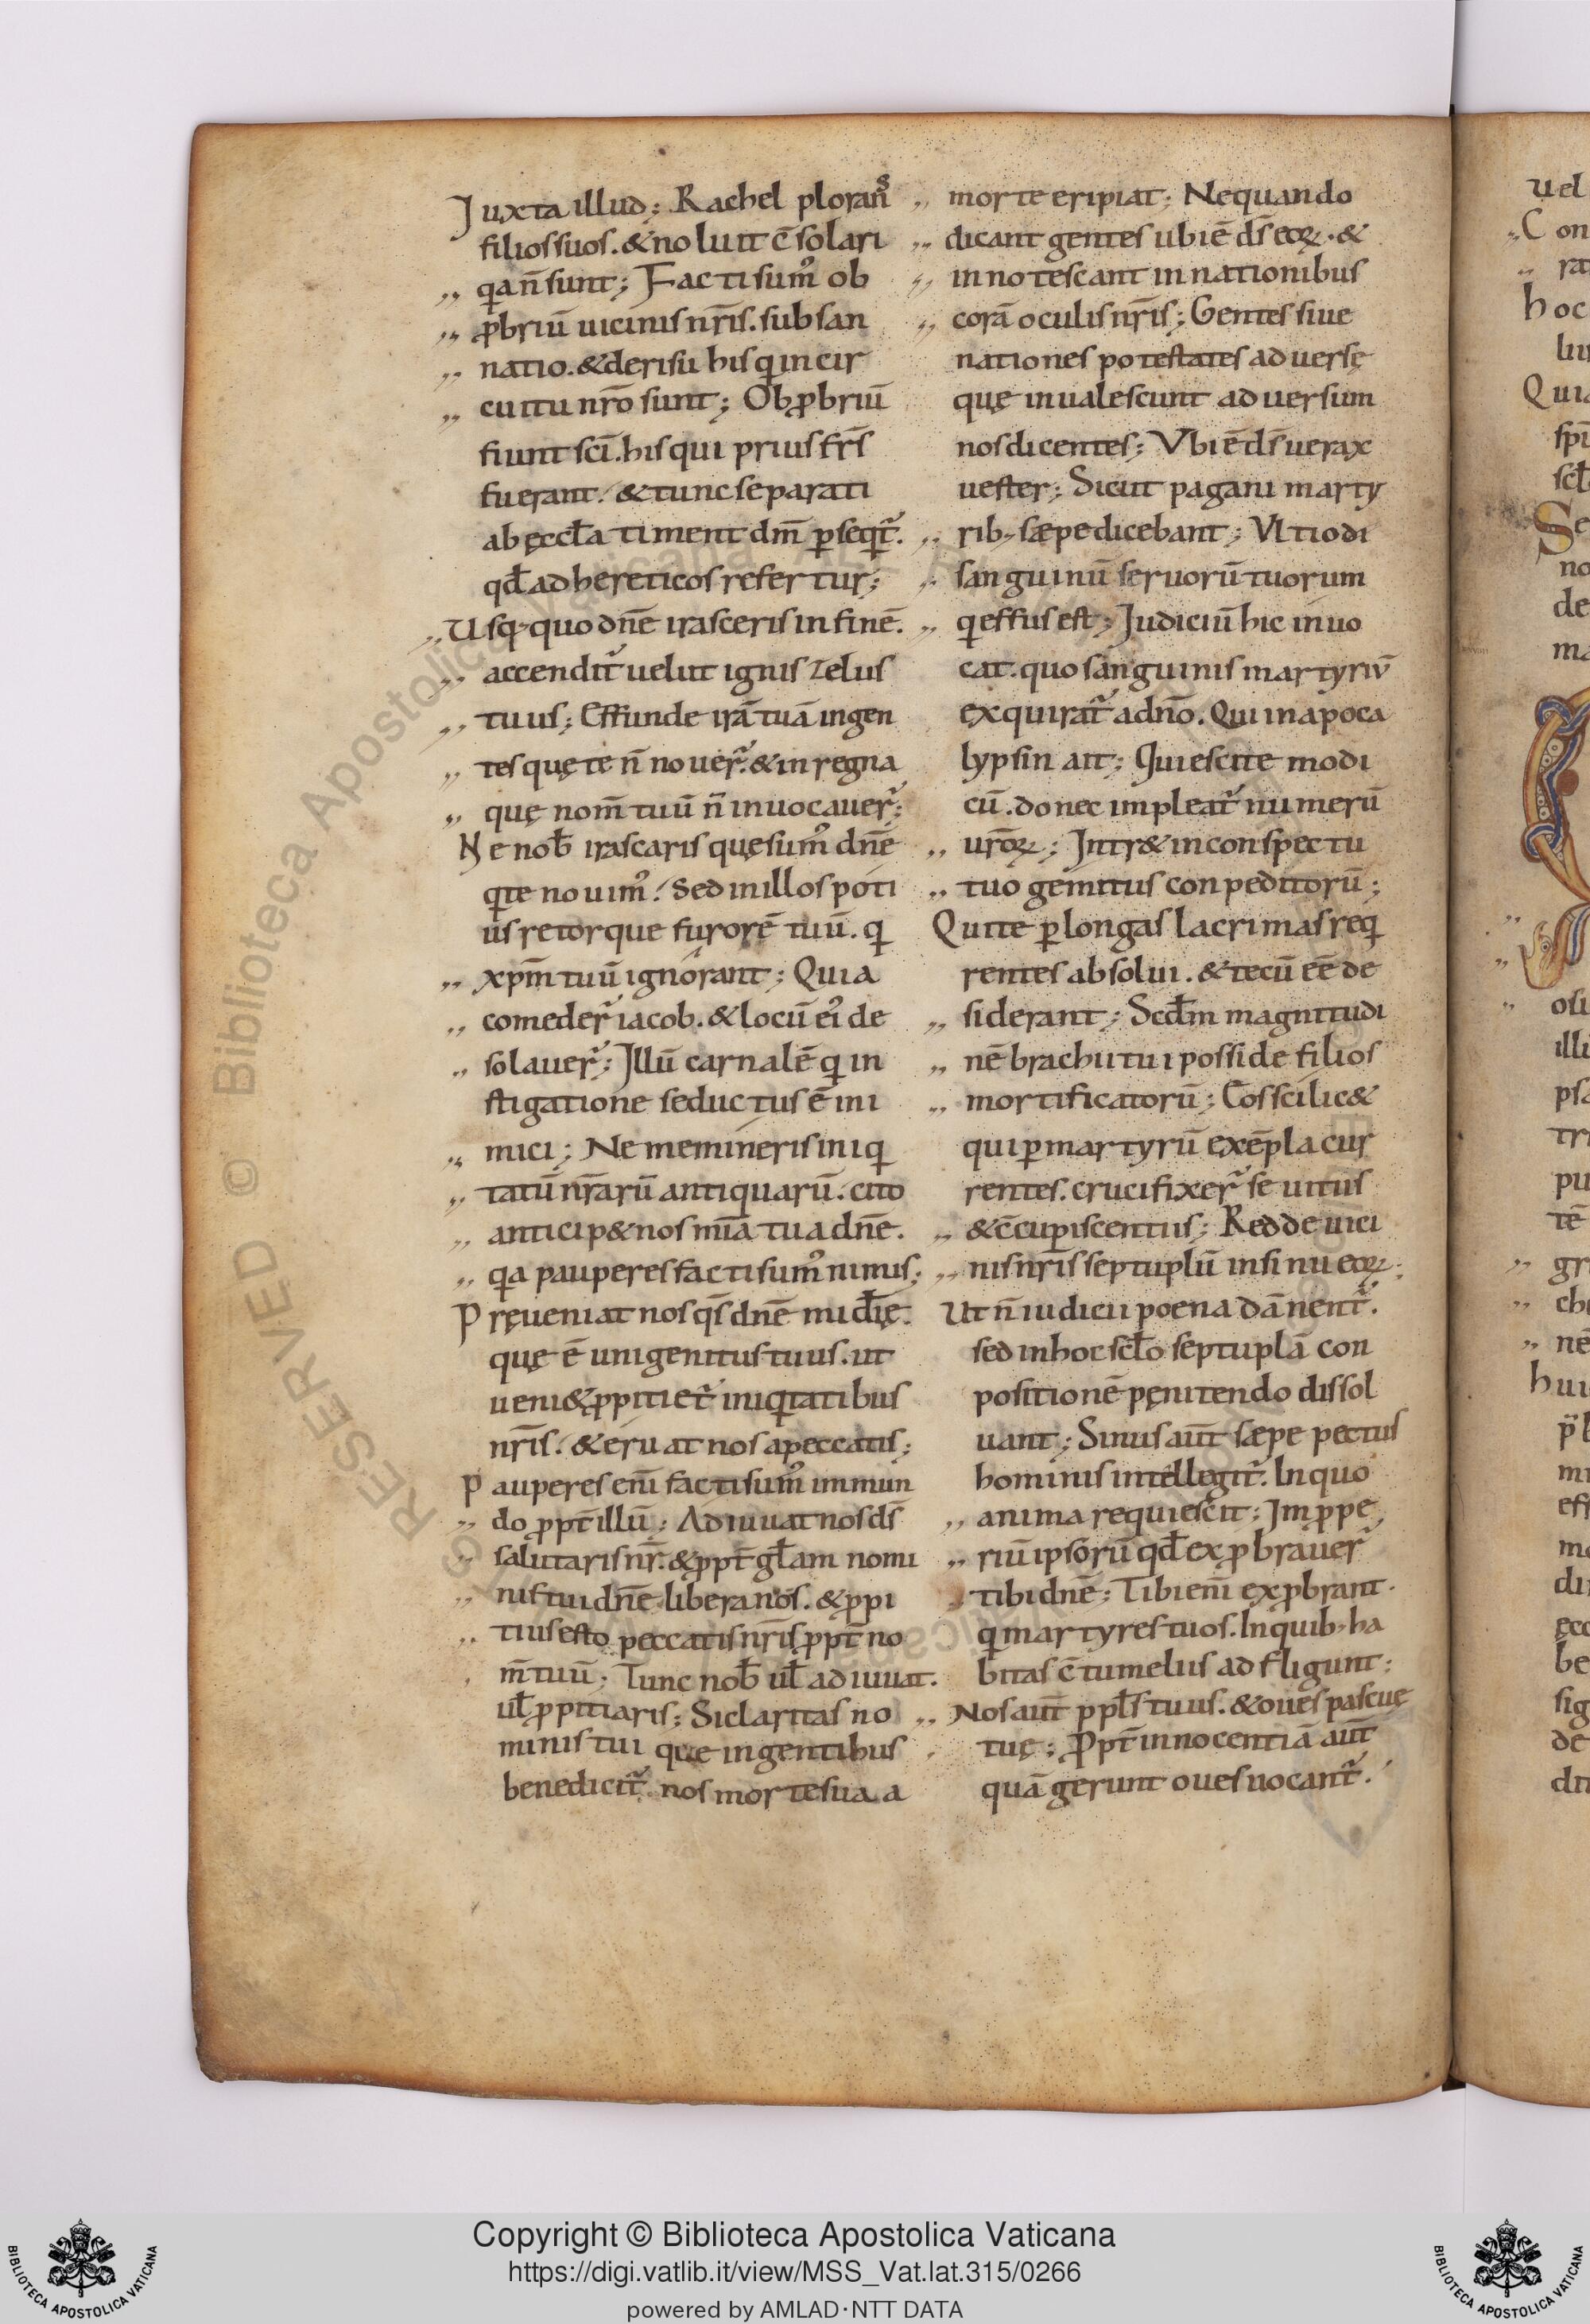 Juxta illud; Rachel plorans̄
filios suos. & noluit c̄solari
qa n̄ sunt; Facti sum᾽ ob
,, ꝓbriū uicinis nr̄is. subsan
,, natio. & derisu his qi in cir
,, cuitu nr̄o sunt; Obꝓbriū
fiunt scī. his qui prius fr̄s
fuerant. & tunc separati
ab ęccl̄a timent dm̄ ꝑseqt᷑.
qd̄ ad hereticos refertur;
,, Usq; quo dn̄e irasceris in finē.
,, accendit᷑ uelut ignis zelus
,, tuus; Effunde irā tuā in gen
,, tes quę te n̄ nouer᷑. & in regna
,, quę nom̄ tuū n̄ inuocauer᷑;
Ne nob̄ irascaris quęsum᾽ dn̄e
qi te nouim᾽. Sed in illos poti
us retorque furorē tuū. qi
,, xpm̄ tuū ignorant; Quia
,, comeder᷑ iacob. & locū ei᾽ de
,, solauer᷑; Jllū carnalē qi in
stigatione seductus ē ini
,, mici; Ne memineris iniqi
,, tatū nr̄arū antiquarū. cito
,, anticip& nos mīa tua dn̄e.
,, qa pauperes facti sum᾽ nimis;
Pręueniat nos qs̄ dn̄e mia᷑ dīę.
quę ē unigenitus tuus. ut
ueni& ꝓpitiet᷑ iniqitatibus
nr̄is. & eruat nos a peccatis;
Pauperes enī facti sum᾽ immun
,, do ꝓpt̄ illū; Adiuuat nos ds̄
,, salutaris nr̄. & ꝓpt̄ gl̄am nomi
,, nis tui dn̄e libera nos. & ꝓpi
,, tius esto peccatis nr̄is ꝓpt̄ no
, m̄ tuū; Tunc nob̄ ul̄ adiuuat.
ul̄ ꝓpitiaris; Si claritas no
minis tui que in gentibus
benedicit᷑. nos morte sua a
,, morte eripiat; Nequando
,, dicant gentes ubi ē ds̄ eoꝝ. &
,, innotescant in nationibus
,, corā oculis nr̄is; Gentes siue
nationes potestates aduersę
quę inualescunt aduersum
nos dicentes; Vbi ē ds̄ uerax
uester; Sicut pagani marty
,, rib; sæpe dicebant; Vltio di
,, sanguinū seruorū tuorum
,, qi effus est; Judiciū hic inuo
cat. quo sanguinis martyriū
exquirat᷑ a dn̄o. Qui in apoca
lypsin ait; Quiescite modi
cū. donec impleat᷑ numerū
,, ur̄oꝝ; Jntr& in conspectu
,, tuo gemitus conpeditorū;
Qui te ꝑ longas lacrimas reqi
rentes absolui. & tecū eē de
,, siderant; Scd̄m magnitudi
,, nē brachii tui posside filios
,, mortificatorū; Eos scilic&
qui ꝑ martyrū exēpla cur
rentes. crucifixer᷑ se uitiis
,, & c̄cupiscentiis; Redde uici
,, nis nr̄is septuplū in sinu eoꝝ;
Ut n̄ iudicii poena dānent᷑.
sed in hoc scl̄o septuplā con
positionē pęnitendo dissol
uant; Sinus aut̄ sæpe pectus
hominis intellegit᷑. In quo
,, anima requiescit; Jmꝓpe
,, riū ipsorū qd̄ exꝓbrauer᷑
,, tibi dn̄e; Tibi enī exꝓbrant.
qi martyres tuos. In quib; ha
bitas c̄tumeliis adfligunt;
,, Nos aut̄ ppl̄s tuus. & oues pascuę
tuę; Ꝓpt̄ innocentiā aut̄
quā gerunt oues uocant᷑.
RESERVED © Biblioteca Apostolica
Copyright © Biblioteca Apostolica Vaticana
https://digi.vatlib.it/view/MSS_Vat.lat.315/0266
powered by AMLAD·NTT DATA
BIBLIOTECA APOSTOLICA VATICANA
BIBLIOTECA APOSTOLICA VATICANA